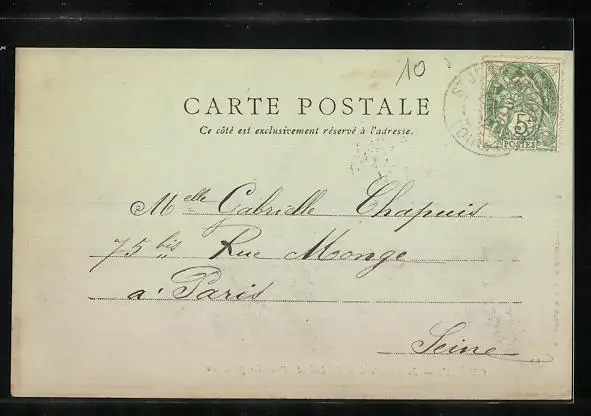 10
CARTE POSTALE
Ce côté est exclusivement réservé à l'adresse.
5
POSTES
Melle Gabrielle Chapuis
75 bis Rue Monge
à Paris
Seine